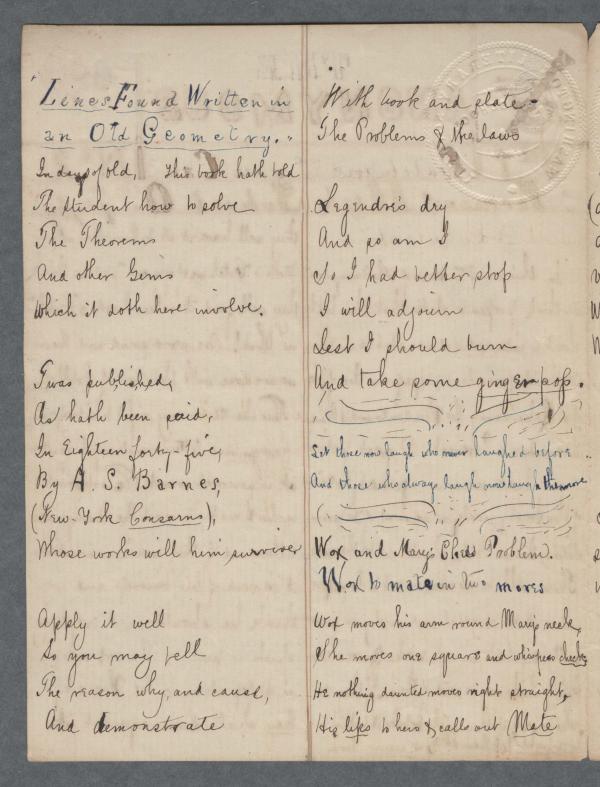 Lines Found Written in
an Old Geometry."
In days of old, This book hath told
The student how to solve
The Theorems
And other Gems
Which it doth here involve.
Twas published,
As hath been said,
In Eighteen forty-five,
By A. S. Barnes,
(New-York Consarns),
Whose works will him survive
Apply it well
So you may tell
The reason why, and cause,
And demonstrate
With book and slate -
The Problems & the laws
Legendre's dry
And so am I
So I had better stop
I will adjourn
Lest I should burn
And take some ginger pop.
Let those now laugh who never laughed before
And those who always laugh now laugh the more
Wox and Mary's Chess Problem.
Wox to mate in two moves
Wox moves his arm round Mary's neck,
She moves one square and whispers check
He nothing daunted moves right straight,
His lips to hers & calls out Mate